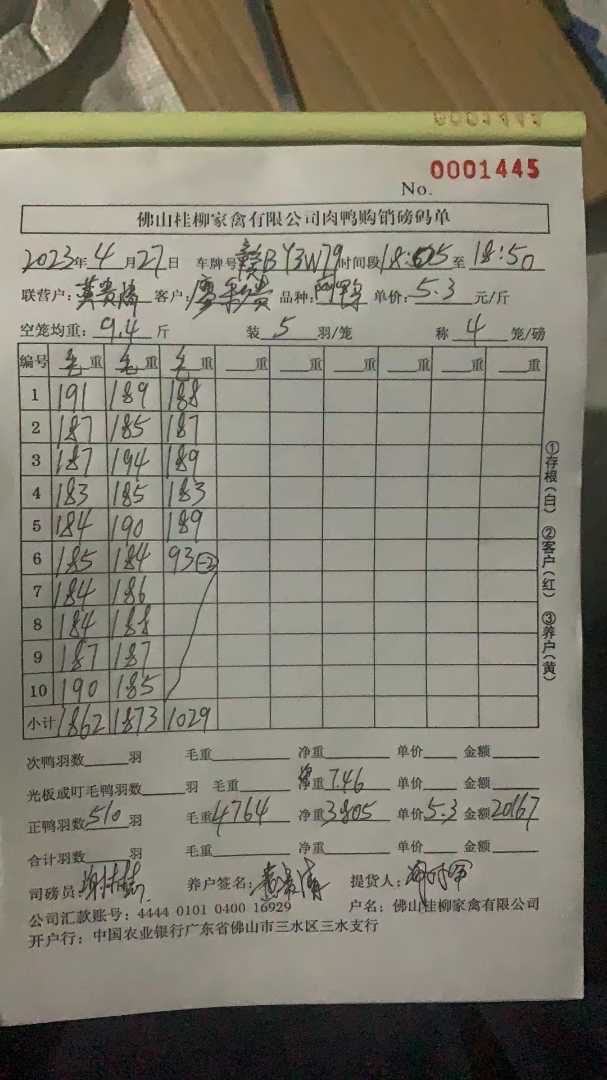 No. 0001445
佛山桂柳家禽有限公司肉鸭购销磅码单
2023年 4 月 27 日 车牌号 BY3W79 时间段 18:05 至 18:50
联营户: 黄贵 客户: 廖 贵 品种: 鸭 单价: 5.3 元/斤
空笼均重: 9.4 斤 装 5 羽/笼 称 4 笼/磅
编号 毛重 毛重 毛重 重 重 重 重 重 重
1 191 189 188
2 187 185 187
3 187 194 189
4 183 185 183
5 184 190 189
6 185 184 93 -2
7 184 186
8 184 188
9 187 187
10 190 185
小计 1862 1873 1029
次鸭羽数 羽 毛重 净重 单价 金额
光板或叮毛鸭羽数 羽 毛重 净重 7.46 单价 金额
正鸭羽数 510 羽 毛重 4764 净重 3805 单价 5.3 金额 20167
合计羽数 羽 毛重 净重 单价 金额
司磅员: 养户签名: 提货人:
公司汇款账号: 4444 0101 0400 16929 户名: 佛山桂柳家禽有限公司
开户行: 中国农业银行广东省佛山市三水区三水支行
①存根(白) ②客户(红) ③养户(黄)